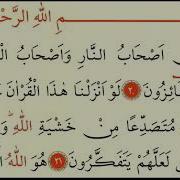 مِ اللهِ الرَّحْ
اَصْحَابُ النَّارِ وَاَصْحَابُ
ائِزُونَ ٢٠ لَوْ اَنْزَلْنَا هٰذَا الْقُرْاٰنَ
مُتَصَدِّعًا مِنْ خَشْيَةِ اللهِ
لَعَلَّهُمْ يَتَفَكَّرُونَ ٢١ هُوَ اللهُ